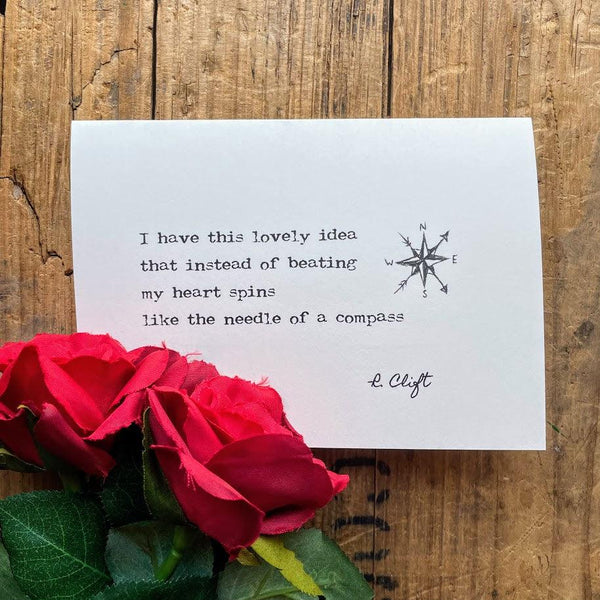 I have this lovely idea
that instead of beating
my heart spins
like the needle of a compass
N
W E
S
R. Clift